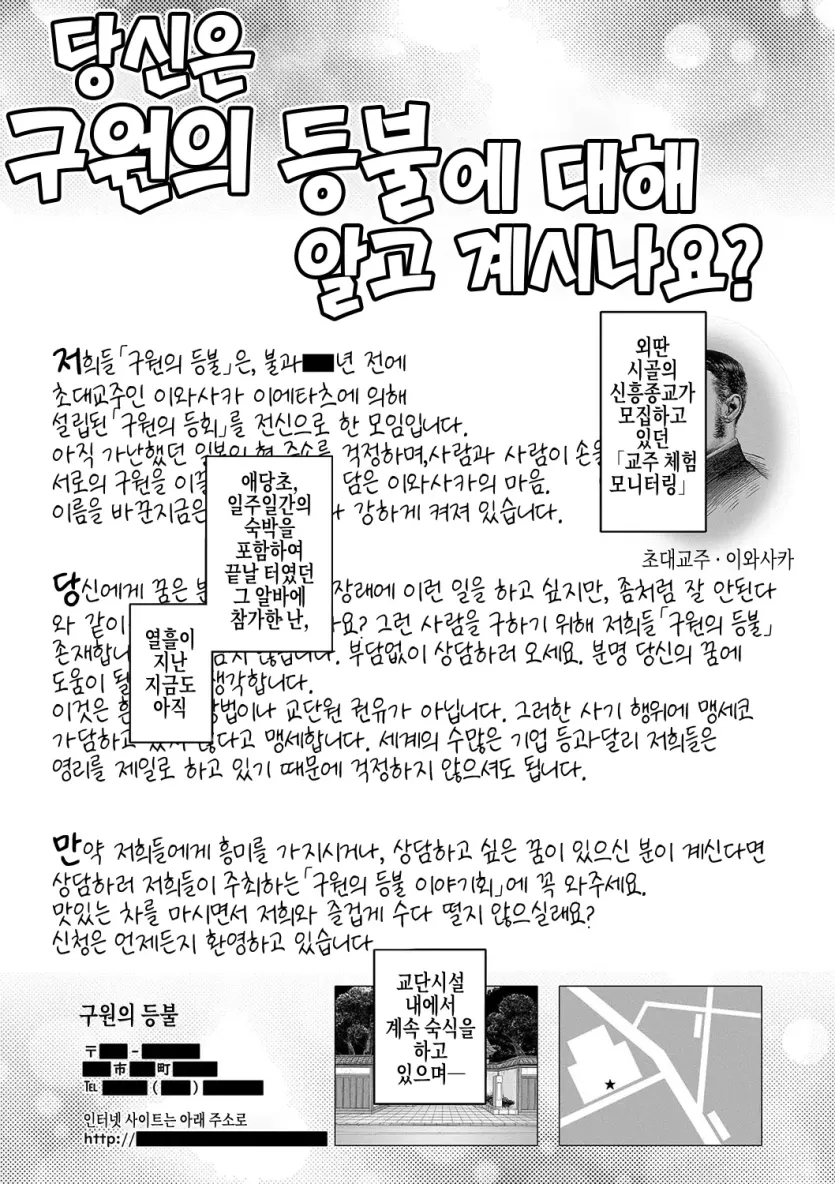 당신은
구원의 등불에 대해
알고 계시나요?
저희들「구원의 등불」은, 불과 년 전에
초대교주인 이와사카 이에타츠에 의해
설립된「구원의 등회」를 전신으로 한 모임입니다.
아직 가난했던 걱정하며,사람과 사람이 손을
서로의 구원을 담은 이와사카의 마음.
이름을 바꾼지금은 강하게 켜져 있습니다.
외딴
시골의
신흥종교가
모집하고
있던
「교주 체험
모니터링」
초대교주·이와사카
애당초,
일주일간의
숙박을
포함하여
끝날 터였던
그 알바에
참가한 난,
열흘이
지난
지금도
아직
당신에게 꿈은 장래에 이런 일을 하고 싶지만, 좀처럼 잘 안된다
와 같이 그런 사람을 구하기 위해 저희들「구원의 등불」
부담없이 상담하러 오세요. 분명 당신의 꿈에
도움이 생각합니다.
이것은 교단원 권유가 아닙니다. 그러한 사기 행위에 맹세코
가담하고 있지 않다고 맹세합니다. 세계의 수많은 기업 등과달리 저희들은
영리를 제일로 하고 있기 때문에 걱정하지 않으셔도 됩니다.
만약 저희들에게 흥미를 가지시거나, 상담하고 싶은 꿈이 있으신 분이 계신다면
상담하러 저희들이 주최하는「구원의 등불 이야기회」에 꼭 와주세요.
맛있는 차를 마시면서 저희와 즐겁게 수다 떨지 않으실래요?
신청은 언제든지 환영하고 있습니다
교단시설
내에서
계속 숙식을
하고
있으며—
구원의 등불
〒 -
市 町
℡ ( )
인터넷 사이트는 아래 주소로
http://